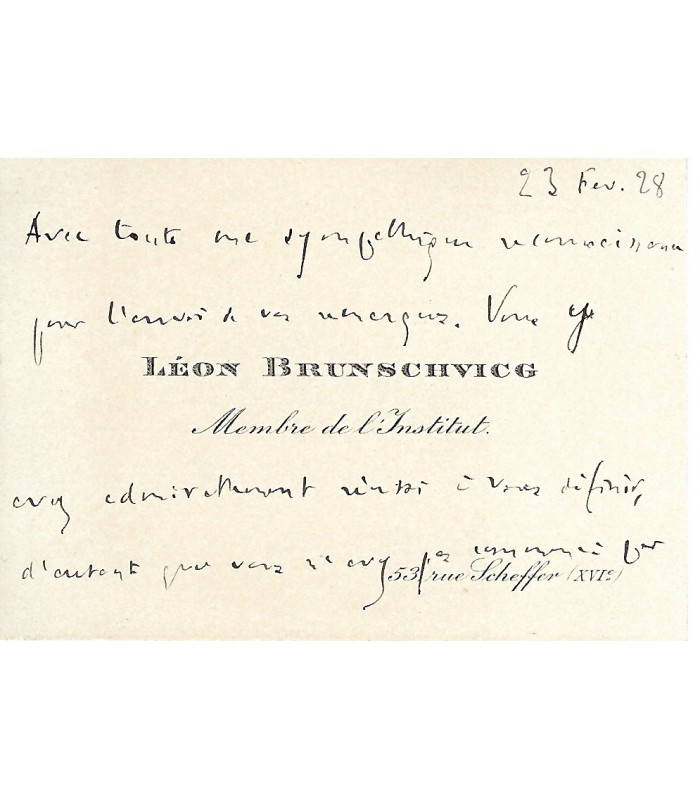 23 Fev. 28
Avec toute ma sympathique reconnaissance
pour l'envoi de vos remarques. Vous y
LÉON BRUNSCHVICG
Membre de l'Institut.
avez admirablement réussi à vous définir,
d'autant que vous n'avez pas commencé par
53, rue Scheffer (XVIe)